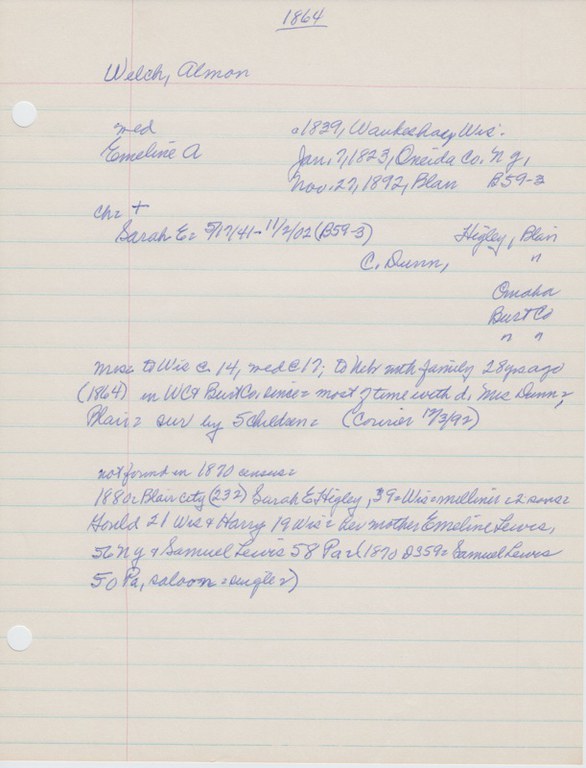 1864
Welch, Almon
med c1839, Waukeshay, Wis.
Emeline A Jan. 7, 1823, Oneida Co. N.Y,
Nov. 27, 1892, Blair B59-3
ch= +
Sarah E= 5/17/41- 11/2/02 (B59-3) Higley, Blair
C. Dunn, "
Omaha
Burt Co
" "
to Wis c. 14, med c 17; to Nebr with family 28 yrs ago
(1864) in WC & Burt Co. since= most of time with d. Mrs Dunn=,
Blair= sur by 5 children= (Courier 12/3/92)
not found in 1870 census=
1880= Blair city (232) Sarah E Higley, 39=Wis=milliner=2 sons=
21 Wis & Harry 19 Wis= her mother Emeline Lewis,
56 NY & Samuel Lewis 58 Pa= (1870 D359= Samuel Lewis
50 Pa, saloon=single=)